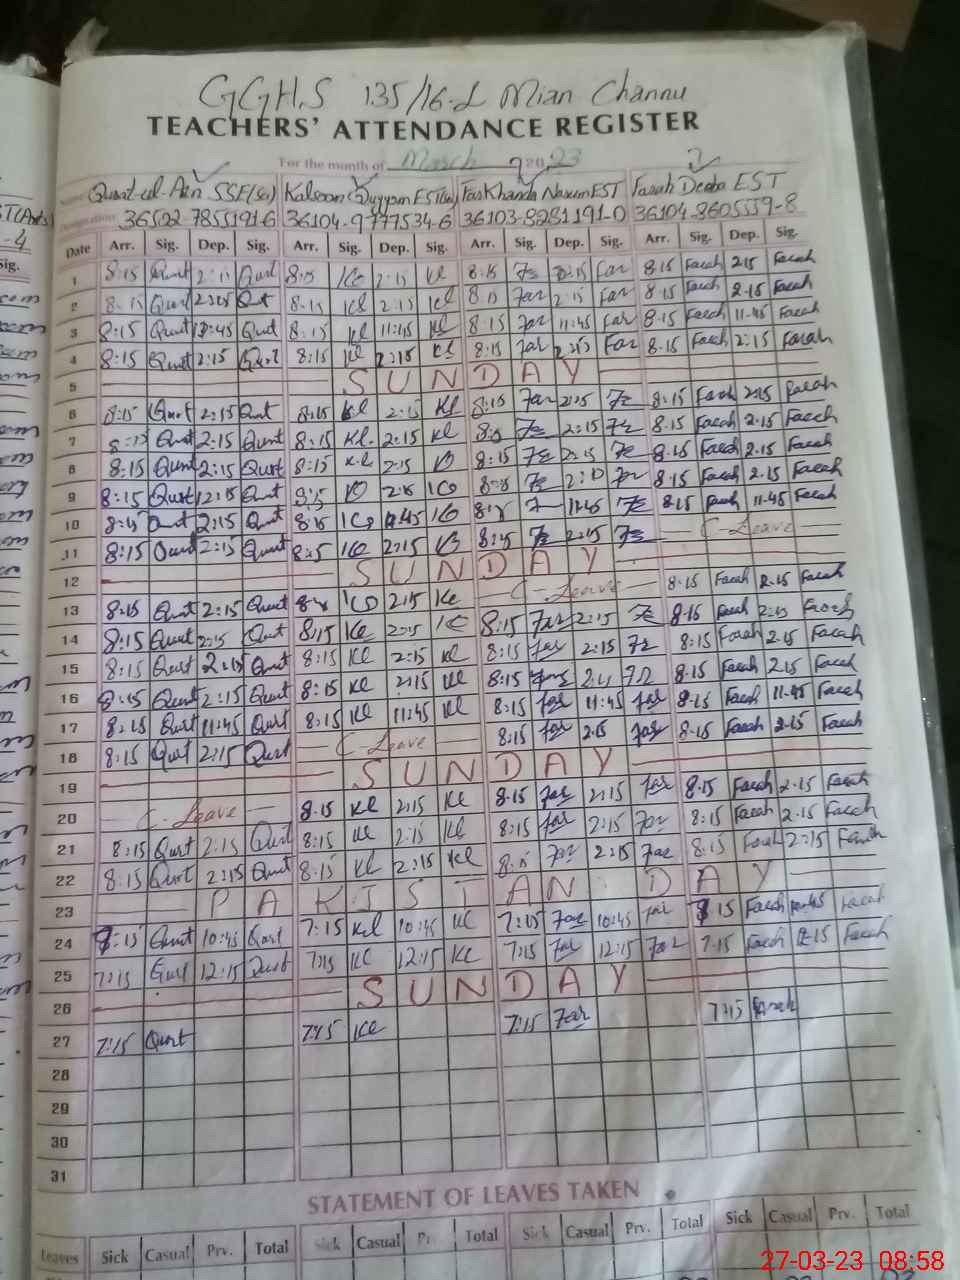 GGHS 135/16-L Mian Channu
TEACHERS' ATTENDANCE REGISTER
For the month of March 2023
Name Qurat-ul-Ain SSE(Sc) Kalsoom Qayyum EST Farkhanda Naxum EST Farah Deeba EST
Designation 36502-7855191-6 36104-9777534-6 36103-8281191-0 36104-3605559-8
Date Arr. Sig. Dep. Sig. Arr. Sig. Dep. Sig. Arr. Sig. Dep. Sig. Arr. Sig. Dep. Sig.
1 8:15 Qurt 2:15 Qurt 8:15 Kl 2:15 Kl 8:15 Fz 2:15 Far 8:15 Farah 2:15 Farah
2 8:15 Qurt Qurt 8:15 Kl 2:15 Kl 8:15 Far 2:15 Far 8:15 Farah 2:15 Farah
3 8:15 Qurt Qurt 8:15 Kl 11:45 Kl 8:15 Far 11:45 Far 8:15 Farah 11:45 Farah
4 8:15 Qurt 2:15 Qurt 8:15 Kl 2:15 Kl 8:15 Far Far 8:15 Farah 2:15 Farah
5 SUNDAY
6 8:15 Qurt 2:15 Qurt 8:15 Kl 2:15 Kl 8:15 Far 2:15 Fz 8:15 Farah 2:15 Farah
7 Qurt 2:15 Qurt 8:15 Kl. 2:15 Kl 8:15 Fz 2:15 Fz 8:15 Farah 2:15 Farah
8 8:15 Qurt 2:15 Qurt 8:15 Kl 2:15 8:15 Fz 2:15 Fz 8:15 Farah 2:15 Farah
9 8:15 Qurt 12:15 Qurt Fz Far 8:15 Farah 2:15 Farah
10 8:15 Qurt 2:15 Qurt 11:45 Fz 8:15 Farah 11:45 Farah
11 8:15 Qurt 2:15 Qurt 8:15 2:15 8:15 Fz 2:15 Fz C-Leave
12 SUNDAY
13 8:15 Qurt 2:15 Qurt 2:15 Ke C-Leave 8:15 Farah 2:15 Farah
14 8:15 Qurt 2:15 Qurt 8:15 Ke 2:15 8:15 Far 2:15 Fz 8:15 Farah 2:15 Farah
15 8:15 Qurt 2:15 Qurt 8:15 Kl 2:15 Kl 8:15 Far 2:15 Fz 8:15 Farah 2:15 Farah
16 8:15 Qurt 2:15 Qurt 8:15 Kl 2:15 Kl 8:15 Far Fz 8:15 Farah 2:15 Farah
17 8:15 Qurt 11:45 Qurt 8:15 Kl 11:45 Kl 8:15 Far 11:45 Far 8:15 Farah 11:45 Farah
18 8:15 Qurt 2:15 Qurt C-Leave 8:15 Far Far 8:15 Farah 2:15 Farah
19 SUNDAY
20 C-Leave 8:15 Kl 2:15 Ke 8:15 Far 2:15 Far 8:15 Farah 2:15 Farah
21 8:15 Qurt 2:15 Qurt 8:15 Ke 2:15 Kl 8:15 Far 2:15 Far 8:15 Farah 2:15 Farah
22 8:15 Qurt 2:15 Qurt 8:15 Kl 2:15 Kl 8:15 Far 2:15 Far 8:15 Farah 2:15 Farah
23 PAKISTAN DAY
24 Qurt 10:45 Qurt 7:15 Kl 10:45 Kl 7:15 Far 10:45 Far Farah 10:45 Farah
25 7:15 Qurt 12:15 Qurt 7:15 Ke 12:15 Ke 7:15 Far 12:15 Far 7:15 Farah 12:15 Farah
26 SUNDAY
27 7:15 Qurt 7:15 Ke 7:15 Far 7:15 Farah
28
29
30
31
STATEMENT OF LEAVES TAKEN
Leaves Sick Casual Prv. Total Sick Casual Total Sick Casual Prv. Total Sick Casual Prv. Total
27-03-23 08:58